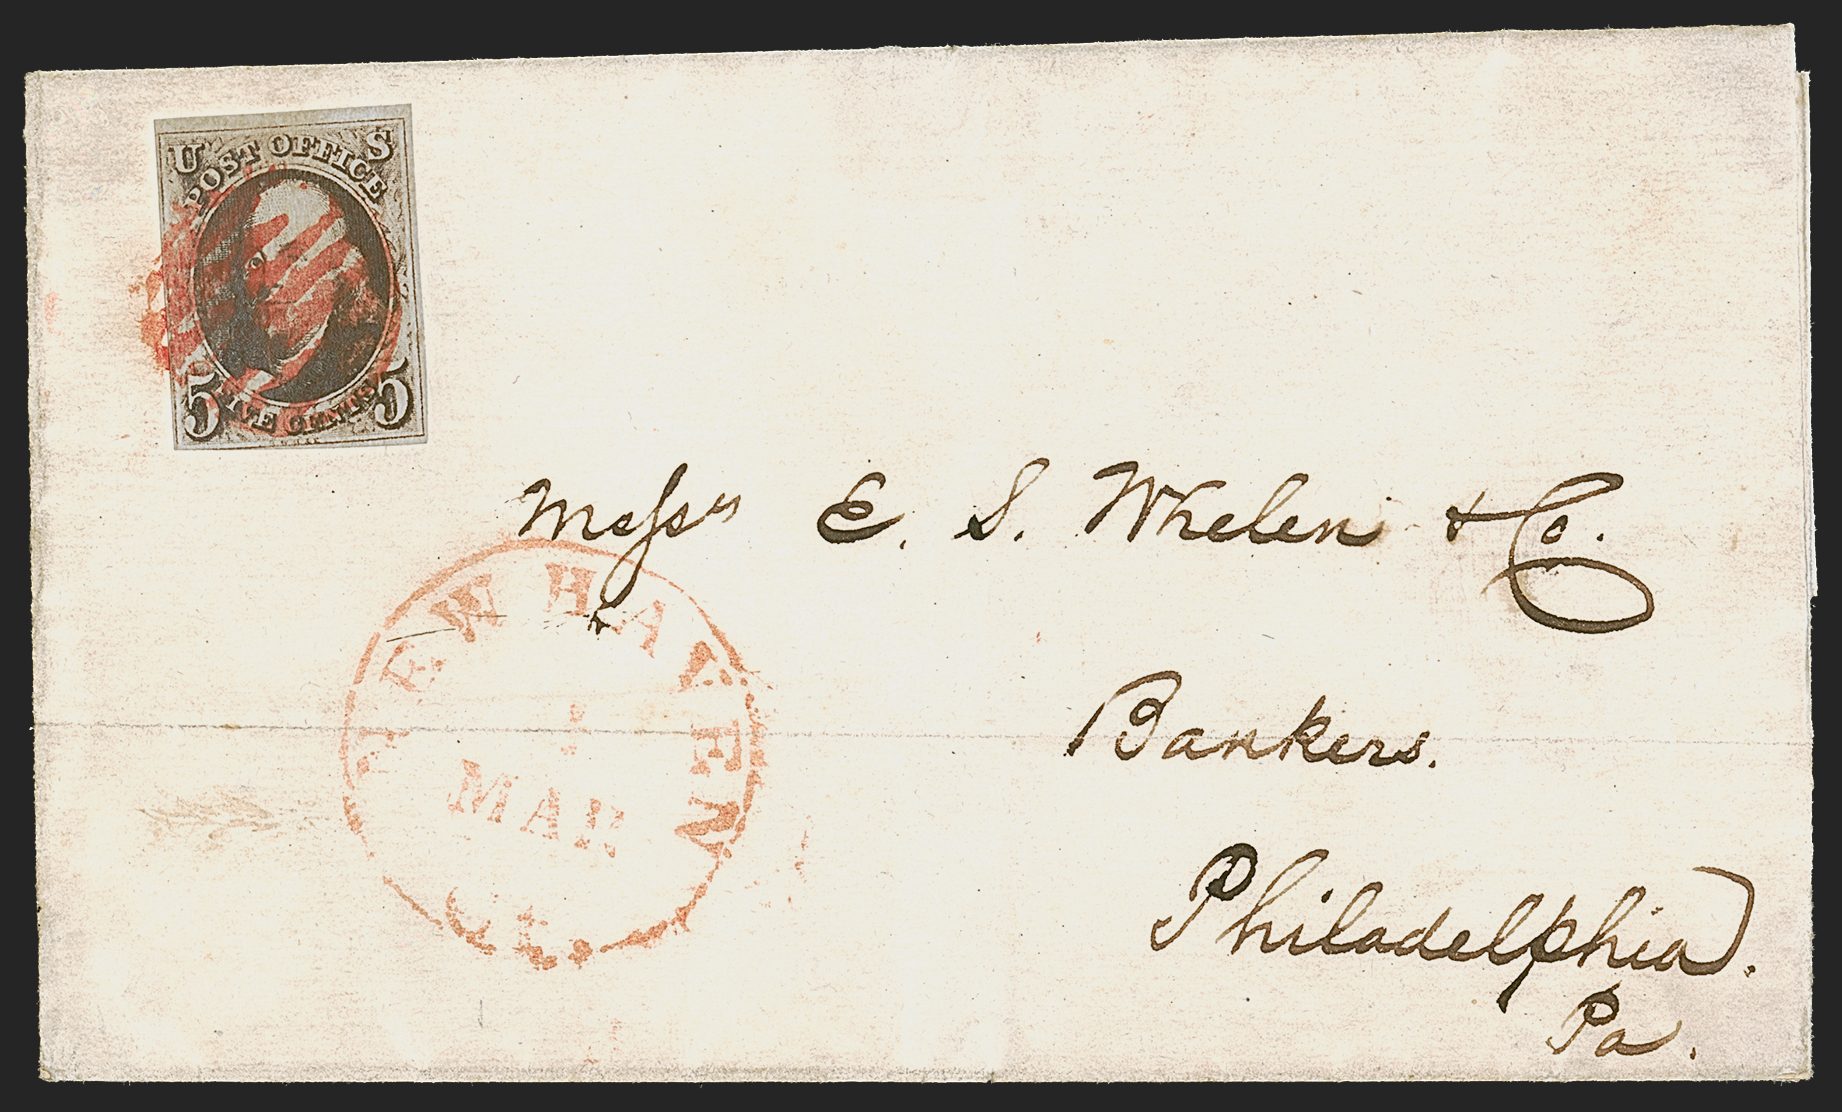 U S
POST OFFICE
5 FIVE CENTS 5
Messrs E. S. Whelen & Co.
NEW HAVEN
1
MAR
CT.
Bankers.
Philadelphia.
Pa.